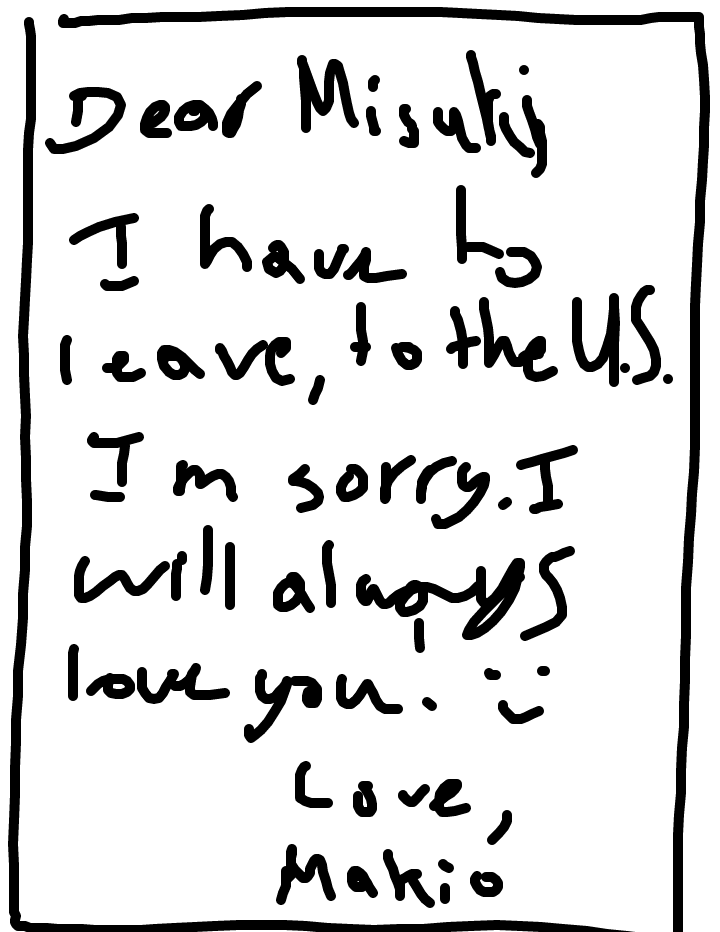 Dear Misuki,
I have to
leave, to the U.S.
I'm sorry. I
will always
love you. :)
Love,
Makio